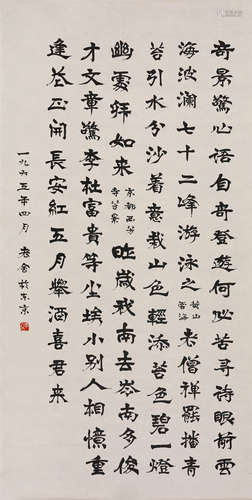 奇景驚心語自奇登尋詩眼前雲
海波瀾七十二峰游泳之黃山雲海老僧禪罷掃青
苔引水分沙着意栽山色輕添苔色碧一燈
幽處拜如來京都西芳寺苔景昨歲我南去嶺南多俊
才文章驚李杜富貴等塵埃小別人相憶重
逢花正開長安紅五月舉酒喜君來
一九六五年四月 老舍於東京